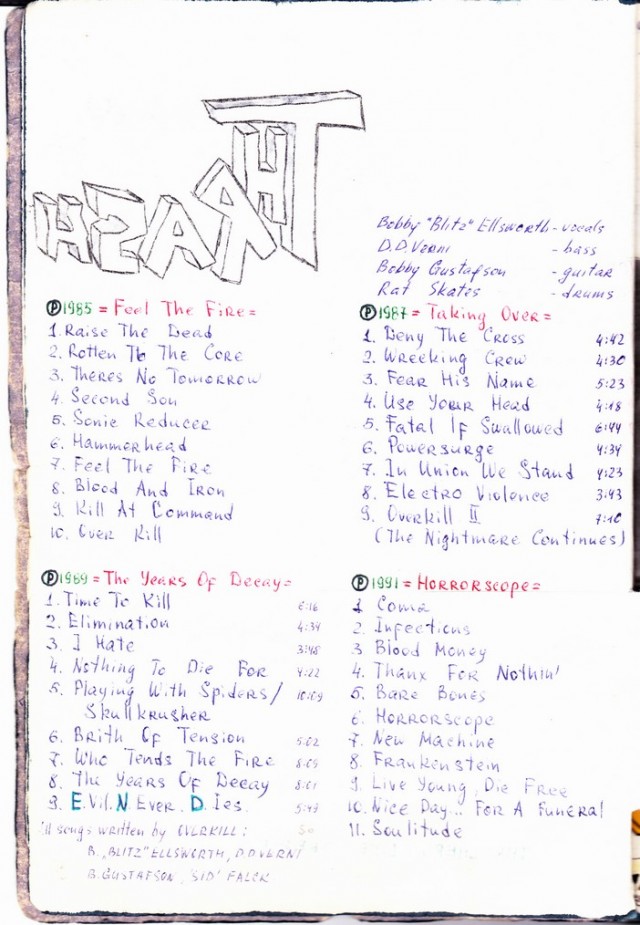 THRASH
Bobby "Blitz" Ellsworth - vocals
D.D. Verni - bass
Bobby Gustafson - guitar
Rat Skates - drums
Ⓟ 1985 = Feel The Fire =
1. Raise The Dead
2. Rotten To The Core
3. Theres No Tomorrow
4. Second Son
5. Sonic Reducer
6. Hammerhead
7. Feel The Fire
8. Blood And Iron
9. Kill At Command
10. Over Kill
Ⓟ 1987 = Taking Over =
1. Deny The Cross 4:42
2. Wrecking Crew 4:30
3. Fear His Name 5:23
4. Use Your Head 4:18
5. Fatal If Swallowed 6:44
6. Powersurge 4:34
7. In Union We Stand 4:23
8. Electro Violence 3:43
9. Overkill II 7:10
(The Nightmare Continues)
Ⓟ 1989 = The Years Of Decay =
1. Time To Kill 6:16
2. Elimination 4:34
3. I Hate 3:48
4. Nothing To Die For 4:22
5. Playing With Spiders/ 10:69
Skullkrusher
6. Brith Of Tension 5:02
7. Who Tends The Fire 8:09
8. The Years Of Decay 8:01
9. E.Vil. N Ever. D.Ies. 5:49
All songs written by OVERKILL:
B. „BLITZ" ELLSWORTH, D.D VERNI
B. GUSTAFSON, 'SID' FALCK
Ⓟ 1991 = Horrorscope =
1 Coma
2. Infections
3 Blood Money
4. Thanx For Nothin'
5. Bare Bones
6. Horrorscope
7. New Machine
8. Frankenstein
9. Live Young, Die Free
10. Nice Day... For A Funeral
11. Soulitude